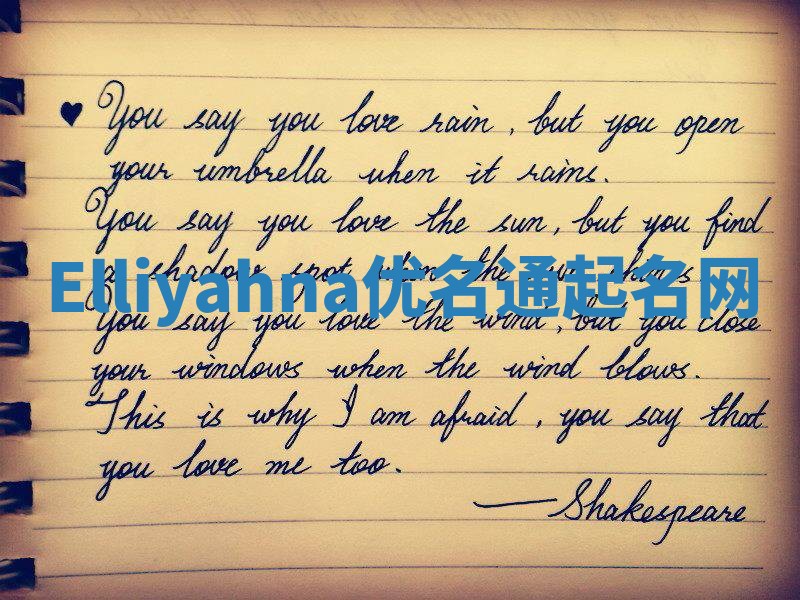 ♥ You say you love rain, but you open
your umbrella when it rains.
You say you love the sun, but you find
a shadow spot when the sun shines
Elliyahna优名通起名网
You say you love the wind, but you close
your windows when the wind blows.
This is why I am afraid, you say that
you love me too.
— Shakespeare